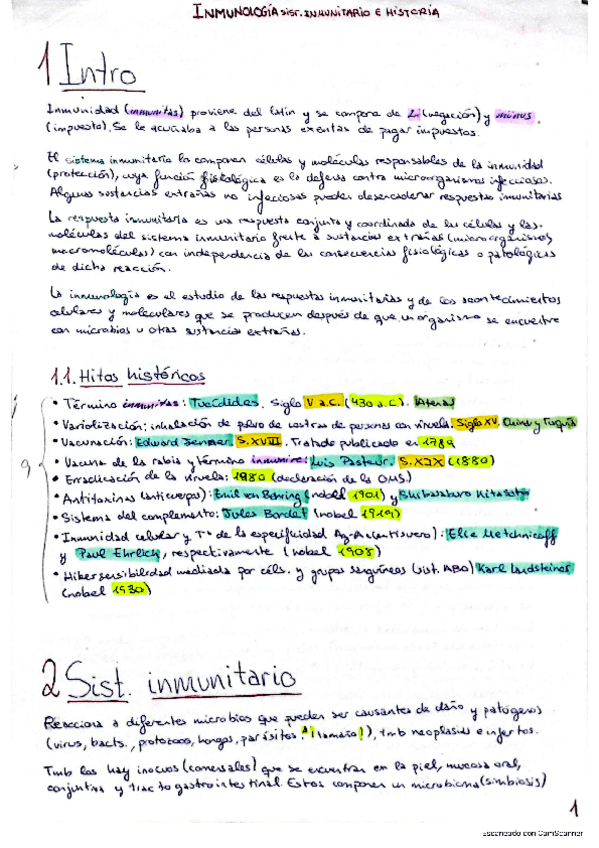 INMUNOLOGÍA SIST. INMUNITARIO E HISTORIA
1 Intro
Inmunidad (inmunitas) proviene del latín y se compone de In (negación) y munus
(impuesto). Se le acuñaba a las personas exentas de pagar impuestos.
El sistema inmunitario lo componen células y moléculas responsables de la inmunidad
(protección), cuya función fisiológica es la defensa contra microorganismos infecciosos.
Algunas sustancias extrañas no infecciosas pueden desencadenar respuestas inmunitarias
La respuesta inmunitaria es una respuesta conjunta y coordinada de las células y las
moléculas del sistema inmunitario frente a sustancias extrañas (microorganismos,
macromoléculas) con independencia de las consecuencias fisiológicas o patológicas
de dicha reacción.
La inmunología es el estudio de las respuestas inmunitarias y de los acontecimientos
celulares y moleculares que se producen después de que un organismo se encuentre
con microbios u otras sustancias extrañas.
1.1. Hitos históricos
• Término inmunitas: Tucídides. Siglo V a.C. (430 a.C). Atenas
• Variolización: inhalación de polvo de costras de personas con viruela. Siglo XV. China y Turquía
• Vacunación: Edward Jenner. S. XVIII. Tratado publicado en 1789
• Vacuna de la rabia y término inmunire: Luis Pasteur. S. XIX (1880)
9
• Erradicación de la viruela: 1980 (declaración de la OMS)
• Antitoxinas (anticuerpos): Emil von Behring (nobel 1901) y Shibasaburo Kitasato
• Sistema del complemento: Jules Bordet (nobel 1919)
• Inmunidad celular y Tª de la especificidad Ag-Ac (antisuero): Elie Metchnicoff
y Paul Ehrlich, respectivamente (nobel 1908)
• Hipersensibilidad mediada por céls. y grupos sanguíneos (sist. ABO) Karl Landsteiner
(nobel 1930)
2 Sist. inmunitario
Reacciona a diferentes microbios que pueden ser causantes de daño y patógenos
(virus, bacts., protozoos, hongos, parásitos (¡tamaño!)), tmb neoplasias e injertos.
Tmb los hay inocuos (comensales) que se encuentran en la piel, mucosa oral,
conjuntiva y tracto gastrointestinal. Estos componen un microbioma (simbiosis)
1
Escaneado con CamScanner